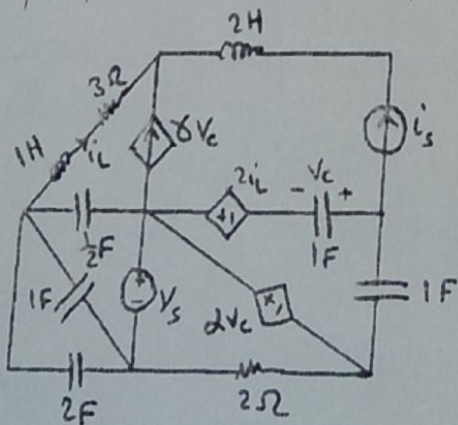 2H
3Ω
1H
i_L
γV_c
i_s
2i_L
- V_c +
½F
1F
1F
1F
V_s
αV_c
2F
2Ω